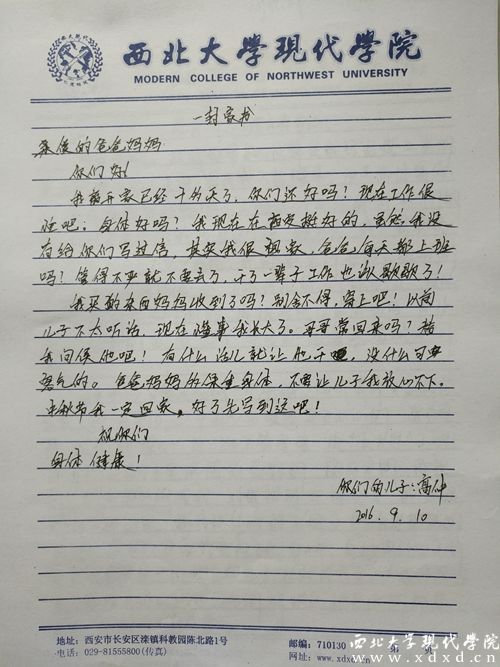 西北大學現代學院
MODERN COLLEGE OF NORTHWEST UNIVERSITY
一封家书
亲爱的爸爸妈妈
你们好!
我离开家已经十多天了,你们还好吗?现在工作很
忙吧;身体好吗?我现在在西安挺好的,虽然我没
有给你们写过信,其实我很想家,爸爸,每天都上班
吗?管得不严就不要去了,干了一辈子工作也该歇歇了!
我买的东西妈妈收到了吗?别舍不得,穿上吧!以前
儿子不太听话,现在懂事我长大了。哥哥常回来吗?替
我问候他吧!有什么活儿就让他干,没什么可
客气的。爸爸妈妈多保重身体,不要让儿子我放心不下。
中秋节我一定回家。好了先写到这吧!
祝你们
身体健康!
你们的儿子:高
2016.9.10
地址:西安市长安区滦镇科教园陈北路1号
电话:029-81555800(传真)
邮编:710130
网址:www.xdxd.cn
西北大学现代学院
www.xdxd.cn